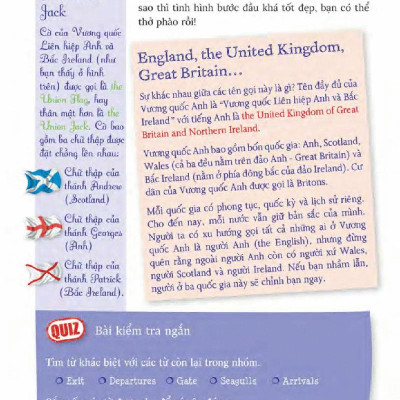 Jack
Cờ của Vương quốc
Liên hiệp Anh và
Bắc Ireland (như
bạn thấy ở hình
trên) được gọi là the
Union Flag, hay
thân mật hơn là the
Union Jack. Cờ bao
gồm ba chữ thập được
đặt chồng lên nhau:
Chữ thập của
thánh Andrew
(Scotland)
Chữ thập của
thánh Georges
(Anh)
Chữ thập của
thánh Patrick
(Bắc Ireland).
sao thì tình hình bước đầu khá tốt đẹp, bạn có thể
thở phào rồi!
England, the United Kingdom,
Great Britain...
Sự khác nhau giữa các tên gọi này là gì? Tên đầy đủ của
Vương quốc Anh là "Vương quốc Liên hiệp Anh và Bắc
Ireland" với tiếng Anh là the United Kingdom of Great
Britain and Northern Ireland.
Vương quốc Anh bao gồm bốn quốc gia: Anh, Scotland,
Wales (cả ba đều nằm trên đảo Anh - Great Britain) và
Bắc Ireland (nằm ở phía đông bắc của đảo Ireland). Cư
dân của Vương quốc Anh được gọi là Britons.
Mỗi quốc gia có phong tục, quốc kỳ và lịch sử riêng.
Cho đến nay, mỗi nước vẫn giữ bản sắc của mình.
Người ta có xu hướng gọi tất cả những ai ở Vương
quốc Anh là người Anh (the English), nhưng đừng
quên rằng ngoài người Anh còn có người xứ Wales,
người Scotland và người Ireland. Nếu bạn nhầm lẫn,
người ở ba quốc gia này sẽ chỉnh bạn ngay.
QUIZ Bài kiểm tra ngắn
Tìm từ khác biệt với các từ còn lại trong nhóm.
Exit Departures Gate Seagulls Arrivals